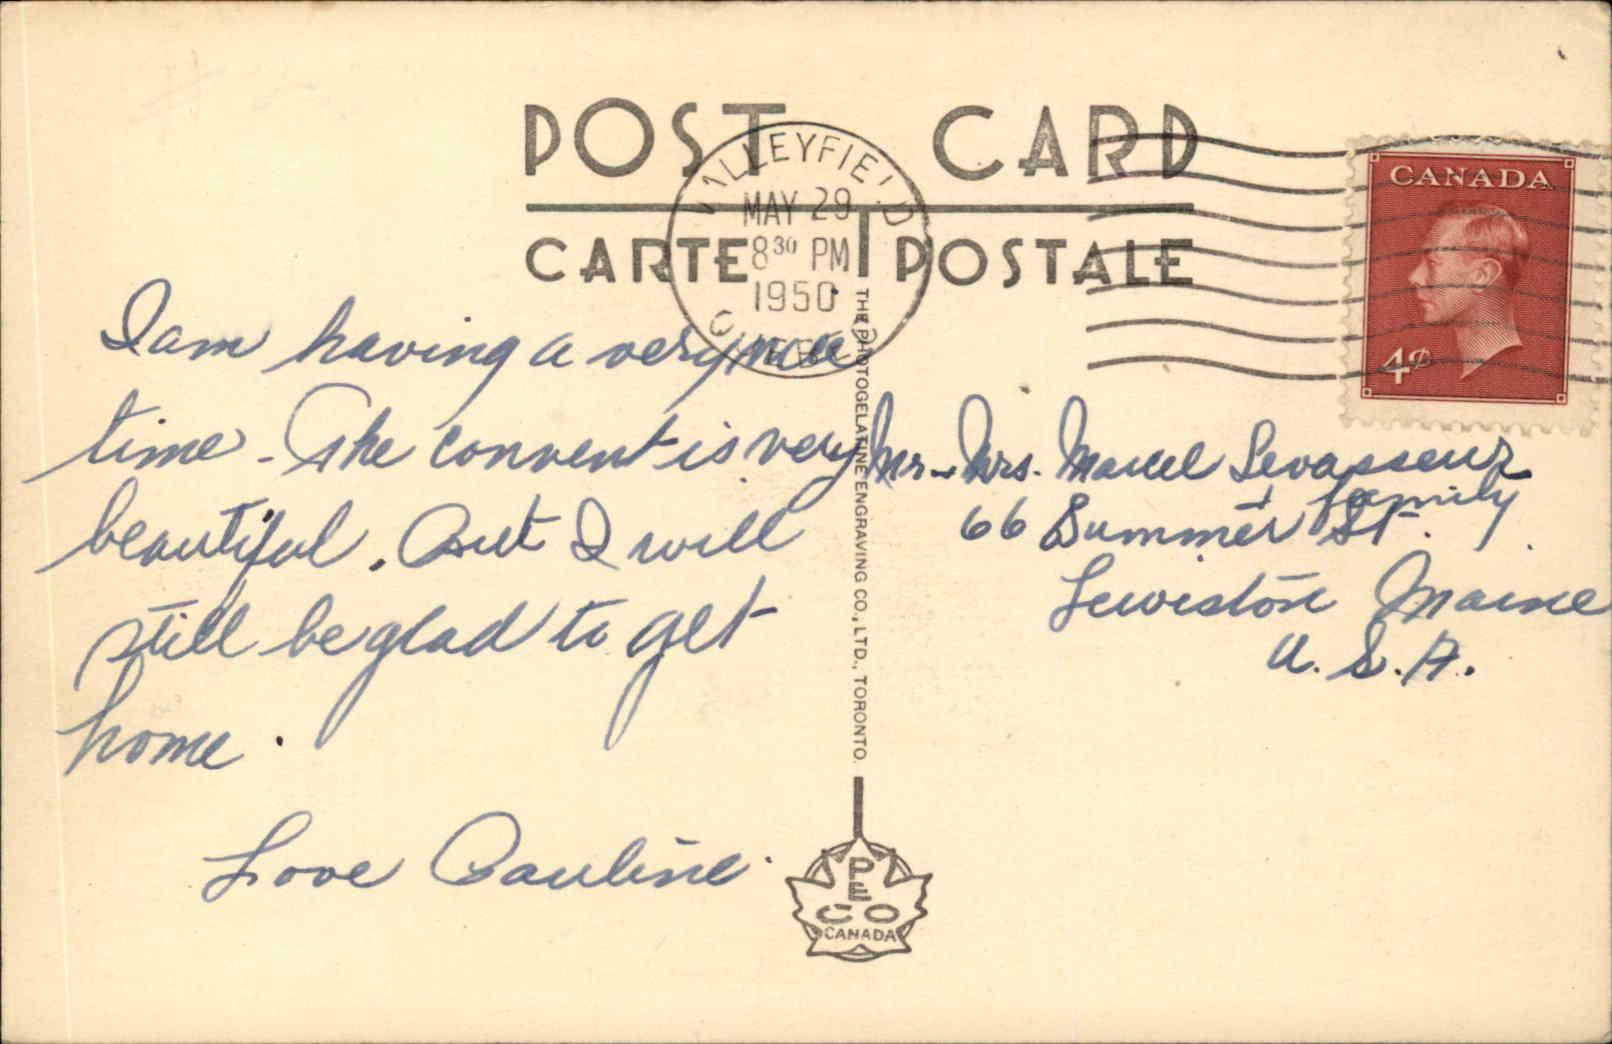 POST CARD
CARTE POSTALE
VALLEYFIELD
MAY 29
8 30 PM
1950
QUEBEC
CANADA
4¢
I am having a very nice
time - The convent is very
beautiful. But I will
still be glad to get
home.
Love Pauline.
THE PHOTOGELATINE ENGRAVING CO., LTD., TORONTO.
Mr - Mrs. Marcel Levasseur
+ family
66 Summer St.
Lewiston Maine
U. S. A.
PECO
CANADA